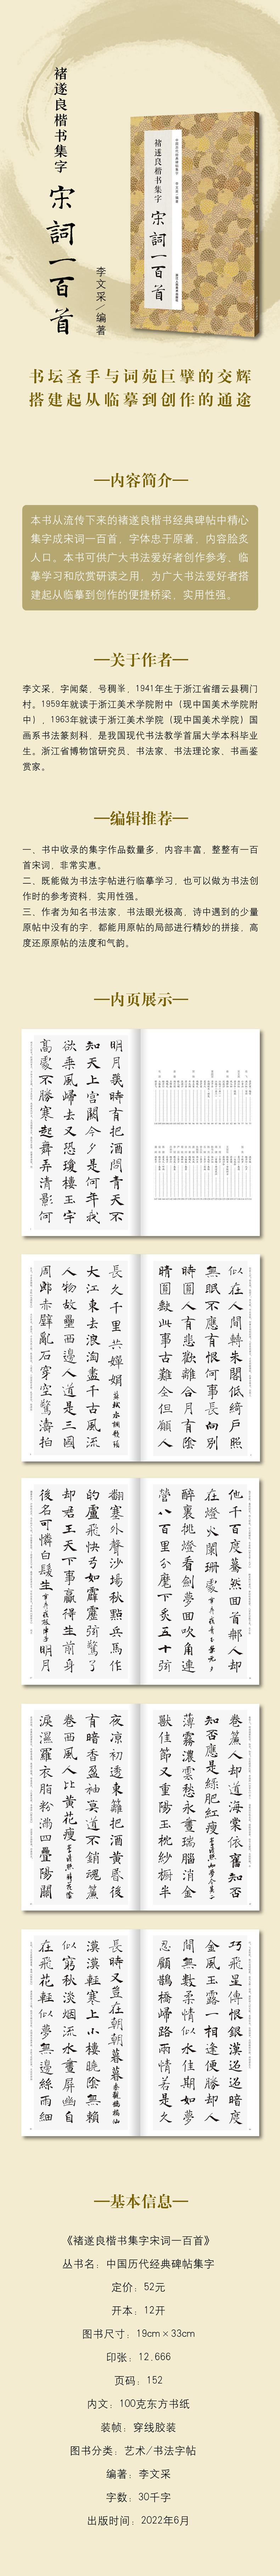 褚遂良楷书集字
宋词一百首
李文采／编著
中国历代经典碑帖集字
李文采 编著
褚遂良楷书集字
宋词一百首
书坛圣手与词苑巨擘的交辉
搭建起从临摹到创作的通途
—内容简介—
本书从流传下来的褚遂良楷书经典碑帖中精心
集字成宋词一百首，字体忠于原著，内容脍炙
人口。本书可供广大书法爱好者创作参考、临
摹学习和欣赏研读之用，为广大书法爱好者搭
建起从临摹到创作的便捷桥梁，实用性强。
—关于作者—
李文采，字闻粲，号稠，1941年生于浙江省缙云县稠门
村。1959年就读于浙江美术学院附中（现中国美术学院附
中），1963年就读于浙江美术学院（现中国美术学院）国
画系书法篆刻科，是我国现代书法教学首届大学本科毕业
生。浙江省博物馆研究员、书法家、书法理论家、书画鉴
赏家。
—编辑推荐—
一、书中收录的集字作品数量多，内容丰富，整整有一百
首宋词，非常实惠。
二、既能做为书法字帖进行临摹学习，也可以做为书法创
作时的参考资料，实用性强。
三、作者为知名书法家，书法眼光极高，诗中遇到的少量
原帖中没有的字，都能用原帖的局部进行精妙的拼接，高
度还原原帖的法度和气韵。
—内页展示—
明月幾時有把酒問青天不
知天上宮闕今夕是何年我
欲乘風歸去又恐瓊樓玉宇
高處不勝寒起舞弄清影何
似在人間轉朱閣低綺戶照
無眠不應有恨何事長向別
時圓人有悲歡離合月有陰
晴圓缺此事古難全但願人
長久千里共嬋娟 蘇軾水調歌頭
大江東去浪淘盡千古風流
人物故壘西邊人道是三國
周郎赤壁亂石穿空驚濤拍
他千百度驀然回首那人却
在燈火闌珊處 辛棄疾青玉案元夕
醉裏挑燈看劍夢回吹角連
營八百里分麾下炙五十弦
翻塞外聲沙場秋點兵馬作
的盧飛快弓如霹靂弦驚了
却君王天下事贏得生前身
後名可憐白髮生 辛棄疾破陣子 明月
卷簾人却道海棠依舊知否
知否應是綠肥紅瘦 李清照如夢令其二
薄霧濃雲愁永晝瑞腦消金
獸佳節又重陽玉枕紗櫥半
夜凉初透東籬把酒黃昏後
有暗香盈袖莫道不銷魂簾
卷西風人比黃花瘦 李清照醉花陰
淚濕羅衣脂粉滿四疊陽關
巧飛星傳恨銀漢迢迢暗度
金風玉露一相逢便勝却人
間無數柔情似水佳期如夢
忍顧鵲橋歸路兩情若是久
長時又豈在朝朝暮暮 秦觀鵲橋仙
漠漠輕寒上小樓曉陰無賴
似窮秋淡烟流水畫屏幽自
在飛花輕似夢無邊絲雨細
—基本信息—
《褚遂良楷书集字宋词一百首》
丛书名：中国历代经典碑帖集字
定价：52元
开本：12开
图书尺寸：19cm×33cm
印张：12.666
页码：152
内文：100克东方书纸
装帧：穿线胶装
图书分类：艺术/书法字帖
编著：李文采
字数：30千字
出版时间：2022年6月